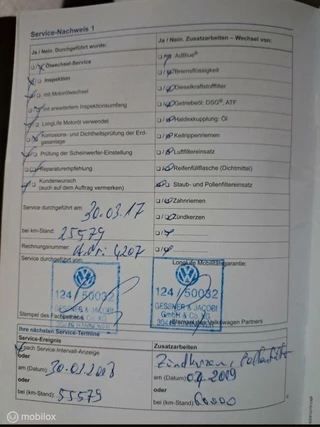 Service-Nachweis 1
Ja / Nein. Durchgeführt wurde:
Ja / Nein. Zusatzarbeiten – Wechsel von:
Ölwechsel-Service
AdBlue®
Inspektion
Bremsflüssigkeit
mit Motorölwechsel
Dieselkraftstofffilter
mit erweitertem Inspektionsumfang
Getriebeöl: DSG®, ATF
LongLife Motoröl verwendet
Haldexkupplung: Öl
Korrosions- und Dichtheitsprüfung der Erd-
gasanlage
Keilrippenriemen
Luftfiltereinsatz
Prüfung der Scheinwerfer-Einstellung
Reparaturempfehlung
Reifenfüllflasche (Dichtmittel)
Kundenwunsch
(auch auf dem Auftrag vermerken)
Staub- und Pollenfiltereinsatz
Zahnriemen
Service durchgeführt am: 30.03.17
Zündkerzen
bei km-Stand: 25579
Rechnungsnummer: 4207
Service durchgeführt von:
LongLife Mobilitätsgarantie:
124 / 50032
GESSNER & JACOBI
GmbH & Co. KG
124 / 50032
GESSNER & JACOBI
GmbH & Co. KG
Stempel des Fachbetriebs
Stempel des Volkswagen Partners
Ihre nächsten Service-Termine
Service-Ereignis
Zusatzarbeiten
nach Service-Intervall-Anzeige
Zündkerzen, Pollenfilter
oder
am (Datum) 30.03.2018
am (Datum) 04.2019
oder
oder
bei (km-Stand) 55579
bei (km-Stand) 60000
mobilox